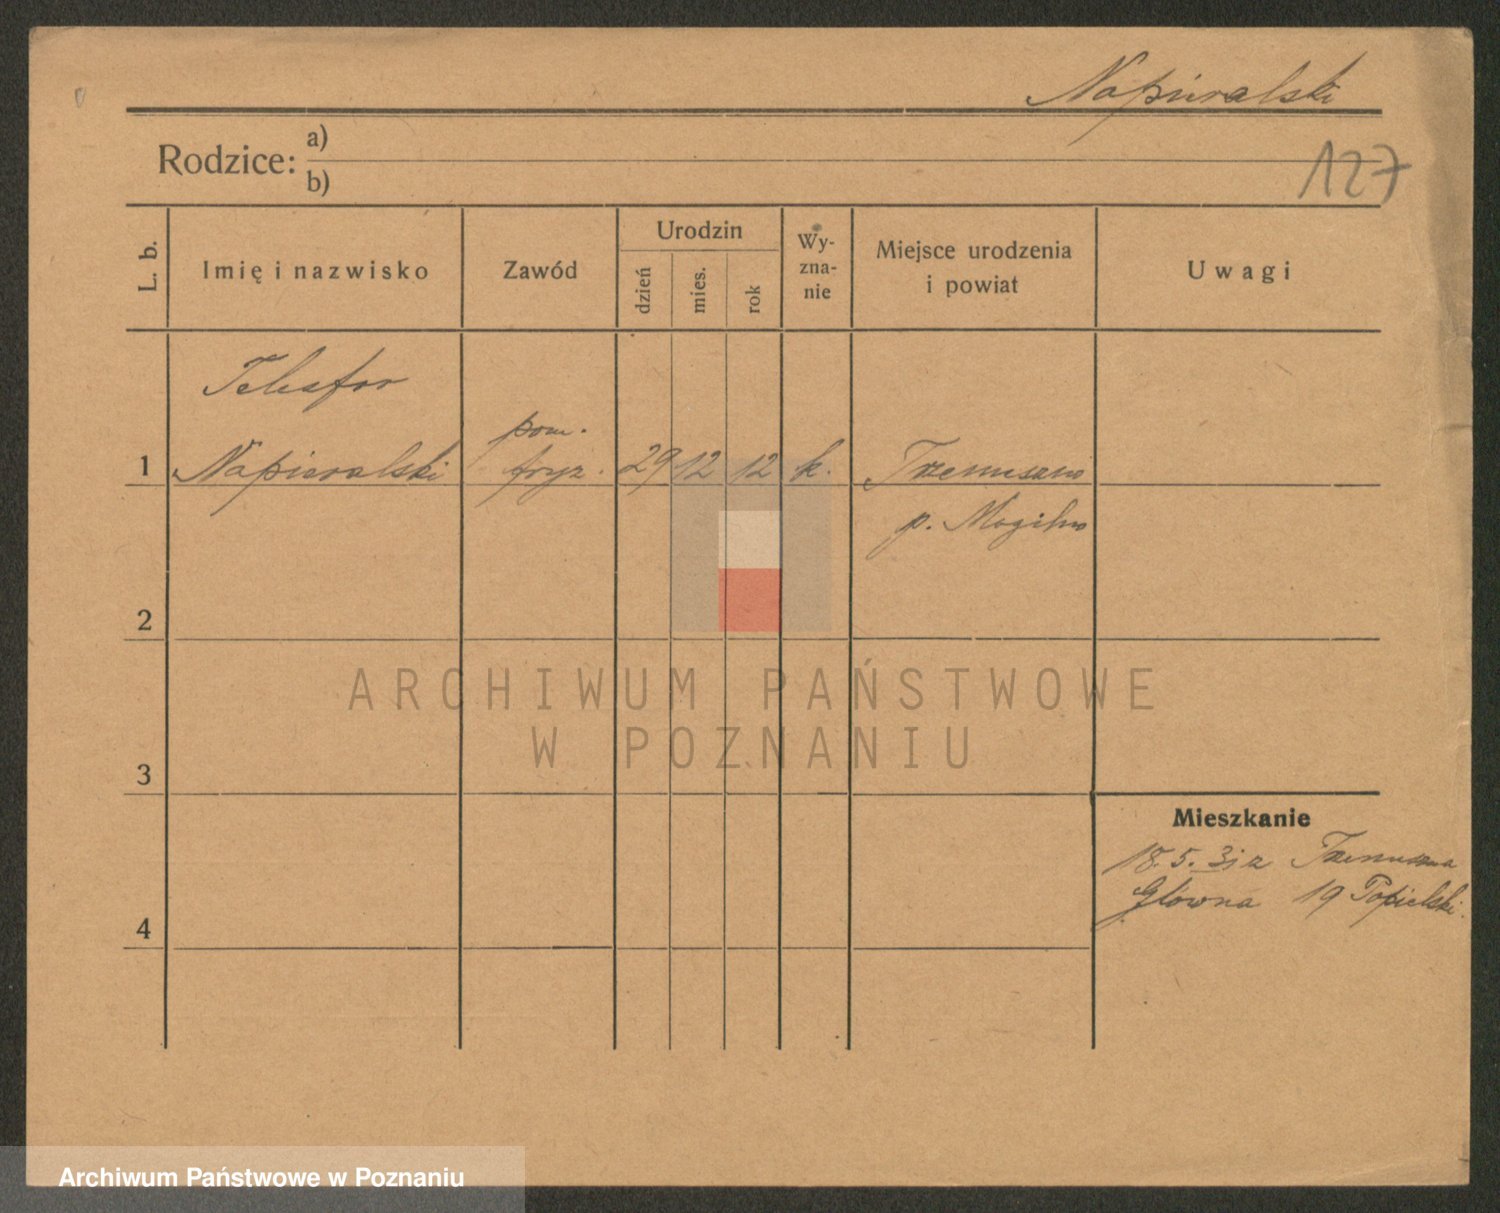 Napieralski
Rodzice: a)
b)
127
L. b.
Imię i nazwisko
Zawód
Urodzin
dzień
mies.
rok
Wy-
zna-
nie
Miejsce urodzenia
i powiat
Uwagi
Telesfor
pom.
1 Napieralski fryz. 29 12 12 k. Trzemeszno
p. Mogilno
2
ARCHIWUM PAŃSTWOWE
W POZNANIU
3
Mieszkanie
18. 5. 31 z Trzemeszna
Główna 19 Popielski.
4
Archiwum Państwowe w Poznaniu